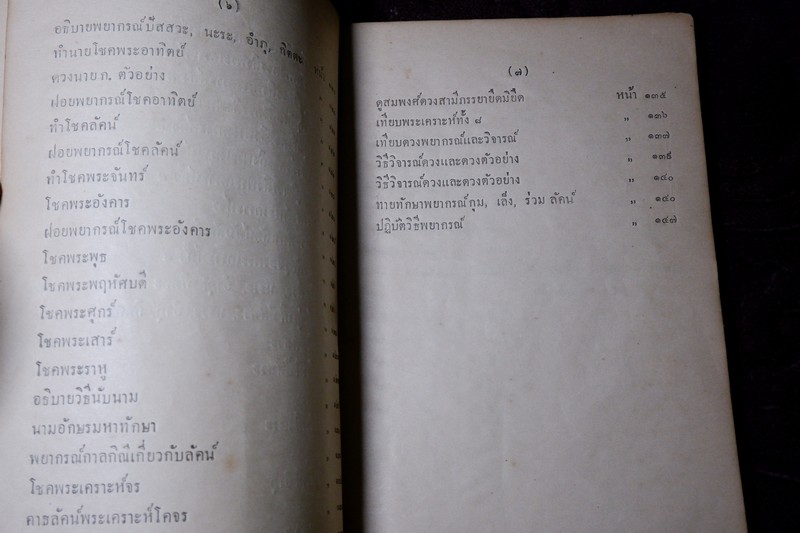 (๖)
อธิบายพยากรณ์ปัสสวะ, นะระ, อำภุ,
ทำนายโชคพระอาทิตย์
ดวงนาย ก. ตัวอย่าง
ฝอยพยากรณ์โชคอาทิตย์
ทำโชคลัคน์
ฝอยพยากรณ์โชคลัคน์
ทำโชคพระจันทร์
โชคพระอังคาร
ฝอยพยากรณ์โชคพระอังคาร
โชคพระพุธ
โชคพระพฤหัศบดี
โชคพระศุกร์
โชคพระเสาร์
โชคพระราหู
อธิบายวิธีนับนาม
นามอักษรมหาทักษา
พยากรณ์กาลกิณีเกี่ยวกับลัคน์
โชคพระเคราะห์จร
คาธลัคน์พระเคราะห์โคจร
(๗)
ดูสมพงศ์ดวงสามีภรรยายึดมิยืด หน้า ๑๓๕
เทียบพระเคราะห์ทั้ง ๘ " ๑๓๖
เทียบดวงพยากรณ์และวิจารณ์ " ๑๓๗
วิธีวิจารณ์ดวงและดวงตัวอย่าง " ๑๓๙
วิธีวิจารณ์ดวงและดวงตัวอย่าง " ๑๔๐
ทายทักษาพยากรณ์กุม, เล็ง, ร่วม ลัคน์ " ๑๔๐
ปฏิบัติวิธีพยากรณ์ " ๑๔๗